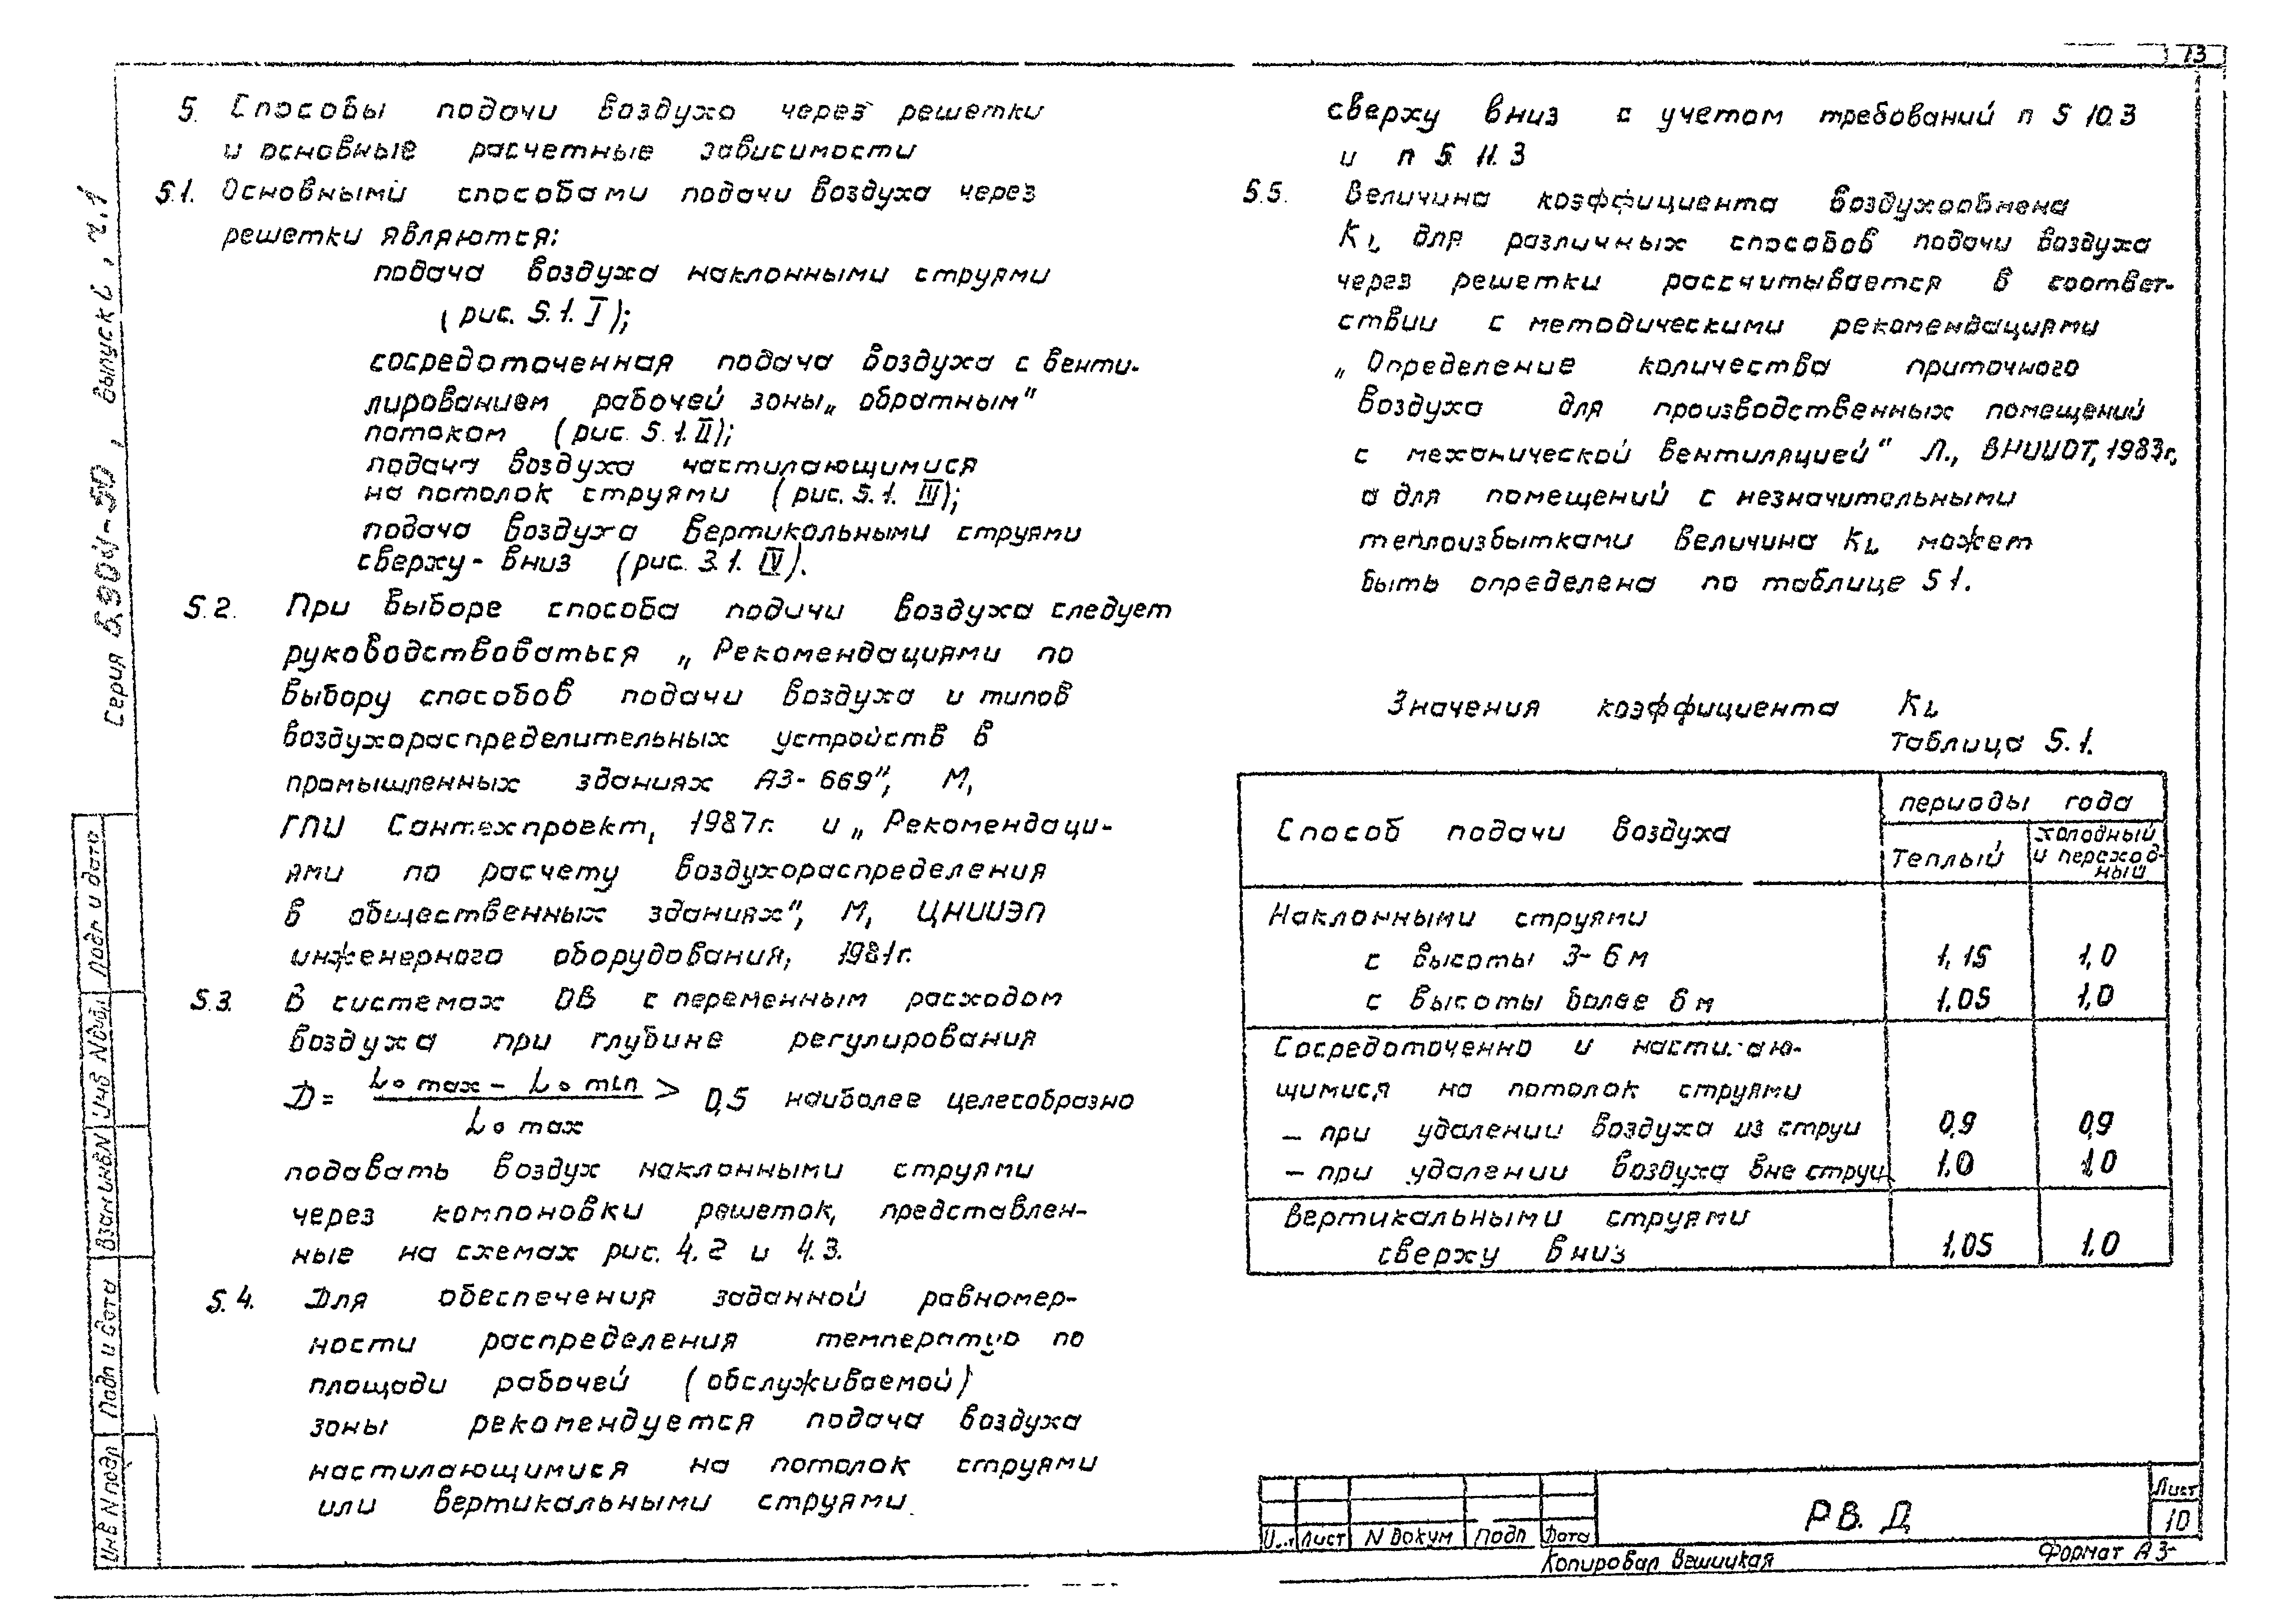 13
5. Способы подачи воздуха через решетки
и основные расчетные зависимости
5.1. Основными способами подачи воздуха через
решетки являются:
подача воздуха наклонными струями
(рис. 5.1. I);
сосредоточенная подача воздуха с венти-
лированием рабочей зоны „обратным"
потоком (рис. 5.1. II);
подача воздуха настилающимися
на потолок струями (рис. 5.1. III);
подача воздуха вертикальными струями
сверху-вниз (рис. 3.1. IV).
5.2. При выборе способа подачи воздуха следует
руководствоваться „Рекомендациями по
выбору способов подачи воздуха и типов
воздухораспределительных устройств в
промышленных зданиях А3-669", М,
ГПИ Сантехпроект, 1987г. и „Рекомендаци-
ями по расчету воздухораспределения
в общественных зданиях", М, ЦНИИЭП
инженерного оборудования, 1981г.
5.3. В системах ОВ с переменным расходом
воздуха при глубине регулирования
D = (L₀ max - L₀ min) / L₀ max > 0,5 наиболее целесобразно
подавать воздух наклонными струями
через компоновки решеток, представлен-
ные на схемах рис. 4.2 и 4.3.
5.4. Для обеспечения заданной равномер-
ности распределения температур по
площади рабочей (обслуживаемой)
зоны рекомендуется подача воздуха
настилающимися на потолок струями
или вертикальными струями
сверху вниз с учетом требований п 5 10.3
и п 5. 11.3
5.5. Величина коэффициента воздухообмена
KL для различных способов подачи воздуха
через решетки рассчитывается в соответ-
ствии с методическими рекомендациями
„Определение количества приточного
воздуха для производственных помещений
с механической вентиляцией" Л., ВНИИОТ, 1983г,
а для помещений с незначительными
теплоизбытками величина KL может
быть определена по таблице 5 1.
Значения коэффициента KL
Таблица 5.1.
Способ подачи воздуха периоды года
Теплый холодный
и переход-
ный
Наклонными струями
с высоты 3-6м 1,15 1,0
с высоты более 6м 1.05 1,0
Сосредоточенно и настилаю-
щимися на потолок струями
- при удалении воздуха из струи 0,9 0,9
- при удалении воздуха вне струи 1.0 1.0
Вертикальными струями
сверху вниз 1.05 1.0
Серия 5.904-50, выпуск 0, ч.1
Подп и дата
Инв N дубл
Взам инв N
Подп и дата
Инв N подл
Лист N докум Подп Дата
РВ. Д
Лист
10
Копировал Вешицкая
Формат А3